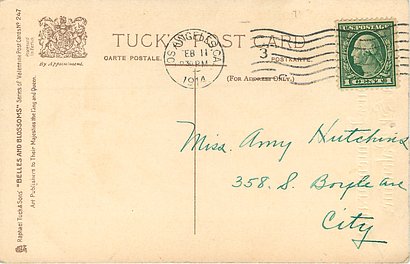 TUCK'S POST CARD
CARTE POSTALE.
POSTKARTE.
(FOR ADDRESS ONLY.)
By Appointment.
LOS ANGELES, CAL.
FEB 11
1914
3
U.S. POSTAGE
1 CENT 1
Miss. Amy Hutchins
358. S. Boyle ave
City
Raphael Tuck & Sons' "BELLES AND BLOSSOMS" Series of Valentine Post Cards No 247
Art Publishers to Their Majesties the King and Queen.